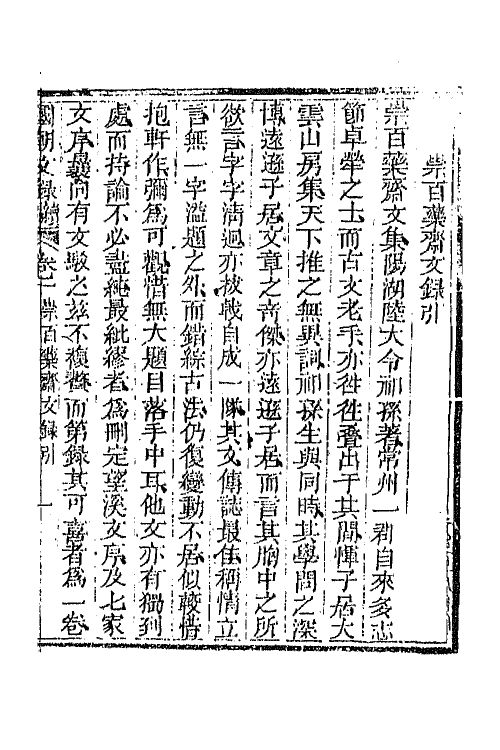 崇百藥齋文錄引
崇百藥齋文集陽湖陸大令祁孫著常州一郡自來多志
節卓犖之士而古文老手亦往往疊出于其間惲子居大
雲山房集天下推之無異詞祁孫生與同時其學問之深
博遠遜子居文章之奇傑亦遠遜子居而言其胸中之所
欲言字字清迥亦拔戟自成一隊其文傳誌最佳稱情立
言無一字溢題之外而錯綜古法仍復變動不居似較惜
抱軒作彌為可觀惜無大題目落手中耳他文亦有獨到
處而持論不必盡純最紕繆者為刪定望溪文序及七家
文序曩尚有文駁之茲不複贅而第錄其可喜者為一卷
國朝文錄續編 卷一 崇百藥齋文錄引 一